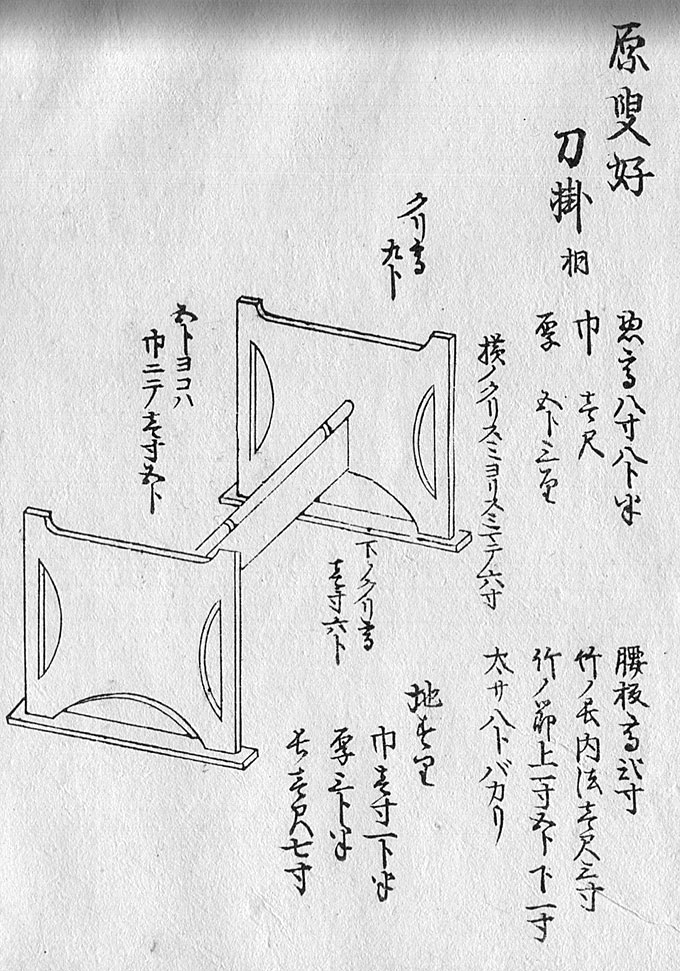 原叟好
刀掛 桐
惣高八寸八卜半
巾 壱尺
厚 五卜三里
横ノクリスミヨリスミマテ六寸
クリ高
九卜
五卜ヨコハ
巾ニテ壱寸五卜
下ノクリ高
壱寸六卜
腰板高弐寸
竹ノ長内法壱尺三寸
竹ノ節上一寸五卜下一寸
太サ八卜バカリ
地 里
巾壱寸一卜半
厚三卜半
長壱尺七寸